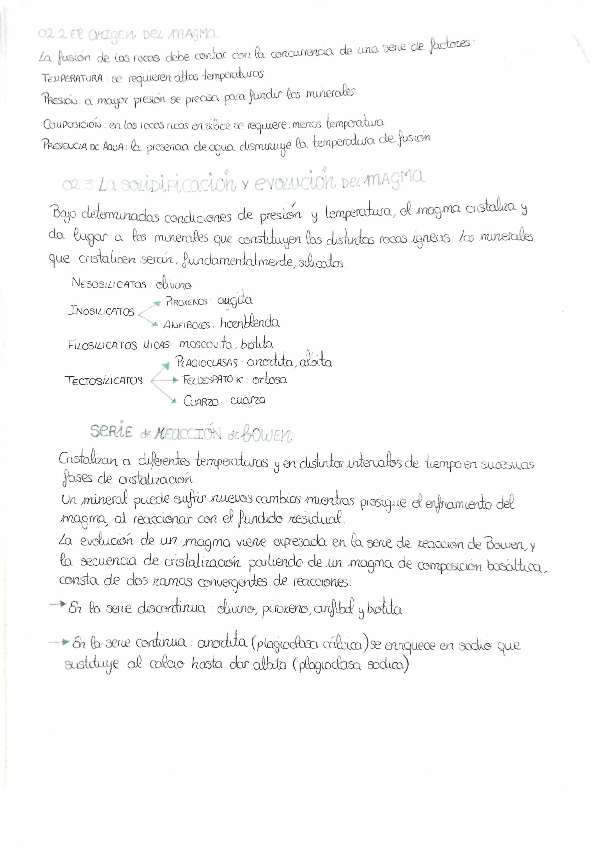 02.2 El ORIGEN DEL MAGMA
La fusión de las rocas debe contar con la concurrencia de una serie de factores:
TEMPERATURA: se requieren altas temperaturas
PRESIÓN: a mayor presión se precisa para fundir los minerales
COMPOSICIÓN: en las rocas ricas en sílice se requiere menos temperatura
PRESENCIA DE AGUA: la presencia de agua disminuye la temperatura de fusión
02.3 La SOLIDIFICACIÓN Y EVOLUCIÓN DEL MAGMA
Bajo determinadas condiciones de presión y temperatura, el magma cristaliza y
da lugar a los minerales que constituyen las distintas rocas ígneas. Los minerales
que cristalicen serán, fundamentalmente, silicatos.
NESOSILICATOS: olivino
INOSILICATOS
PIROXENOS: augita
ANFIBOLES: hornblenda
FILOSILICATOS MICAS: moscovita, biotita
TECTOSILICATOS
PLAGIOCLASAS: anortita, albita
FELDESPATO K: ortosa
CUARZO: cuarzo
SERIE de REACCIÓN de BOWEN
Cristalizan a diferentes temperaturas y en distintos intervalos de tiempo en sucesivas
fases de cristalización
Un mineral puede sufrir nuevos cambios mientras prosigue el enfriamiento del
magma, al reaccionar con el fundido residual.
La evolución de un magma viene expresada en la serie de reacción de Bowen, y
la secuencia de cristalización partiendo de un magma de composición basáltica,
consta de dos ramas convergentes de reacciones:
→ En la serie discontinua olivino, piroxeno, anfibol y biotita
→ En la serie continua: anortita (plagioclasa cálcica) se enriquece en sodio que
sustituye al calcio hasta dar albita (plagioclasa sódica)